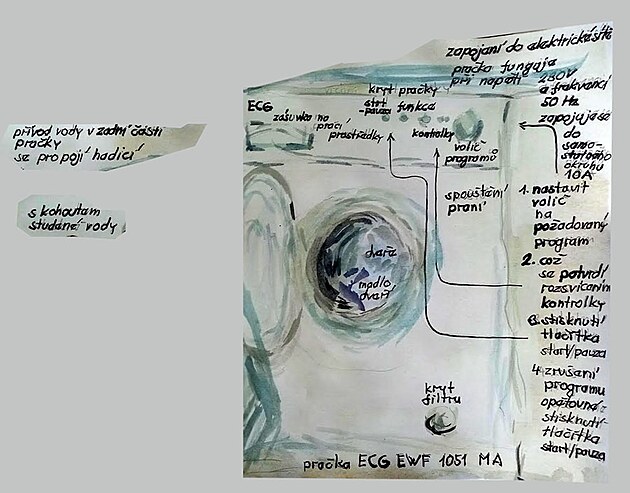 zapojení do elektrické sítě
pračka funguje
při napětí 230V
a frekvenci
50 Hz
zapojuje se
do
samo-
statného
okruhu
10A
přívod vody v zadní části
pračky
se propojí hadicí
s kohoutam
studené vody
ECG
kryt pračky
zásuvka na
prací
prostředky
strt
-pauza
funkce
kontrolky
volič
programů
spouštění
praní
dvaře
madlo
dvaří
1. nastavit
volič
na
požadovaný
program
2. což
se potvrdí
rozsvícením
kontrolky
stisknutí
tlačítka
start/pauza
4. zrušaní
programu
opětovné
stisknutí
tlačítka
start/pauza
kryt
filtru
pračka ECG EWF 1051 MA